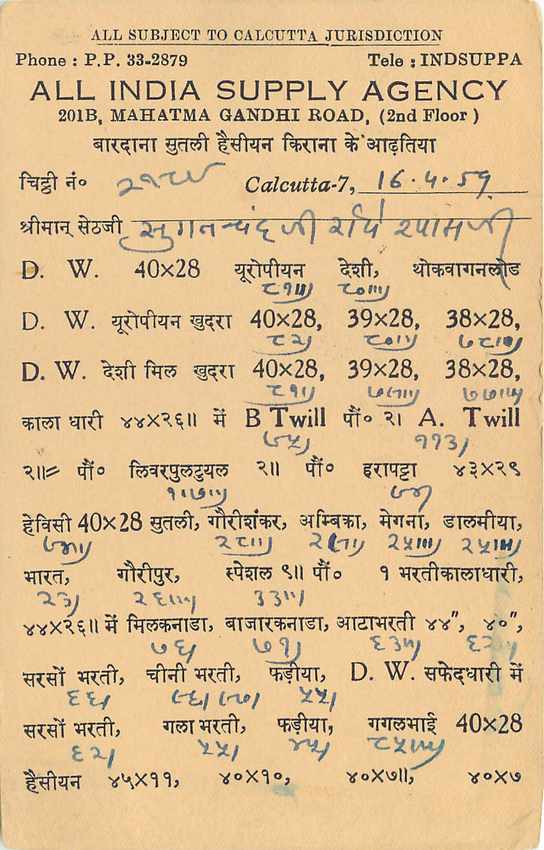 ALL SUBJECT TO CALCUTTA JURISDICTION
Phone : P.P. 33-2879 Tele : INDSUPPA
ALL INDIA SUPPLY AGENCY
201B, MAHATMA GANDHI ROAD, (2nd Floor )
बारदाना सुतली हैसीयन किराना के आढ़तिया
चिट्ठी नं० Calcutta-7, 16.4.59
श्रीमान् सेठजी सुगनचंदजी राधे श्यामजी
D. W. 40×28 यूरोपीयन देशी, थोकवागनलोड
८१॥।) ८०॥।)
D. W. यूरोपीयन खुदरा 40×28, 39×28, 38×28,
८२) ८०॥)
D. W. देशी मिल खुदरा 40×28, 39×28, 38×28,
८१॥)
काला धारी ४४×२६॥ में B Twill पौं० २। A. Twill
११३)
२॥= पौं० लिवरपुलटुयल २॥ पौं० इरापट्टा ४३×२९
हेविसी 40×28 सुतली, गौरीशंकर, अम्बिका, मेगना, डालमीया,
२८॥) २५॥।)
भारत, गौरीपुर, स्पेशल ९॥ पौं० १ भरतीकालाधारी,
२३) ३३॥)
४४×२६॥ में मिलकनाडा, बाजारकनाडा, आटाभरती ४४″, ४०″,
७६) ७१)
सरसों भरती, चीनी भरती, फड़ीया, D. W. सफेदधारी में
६६) ५५)
सरसों भरती, गला भरती, फड़ीया, गगलभाई 40×28
६२) ५५) ४५)
हैसीयन ४५×११, ४०×१०, ४०×७॥, ४०×७